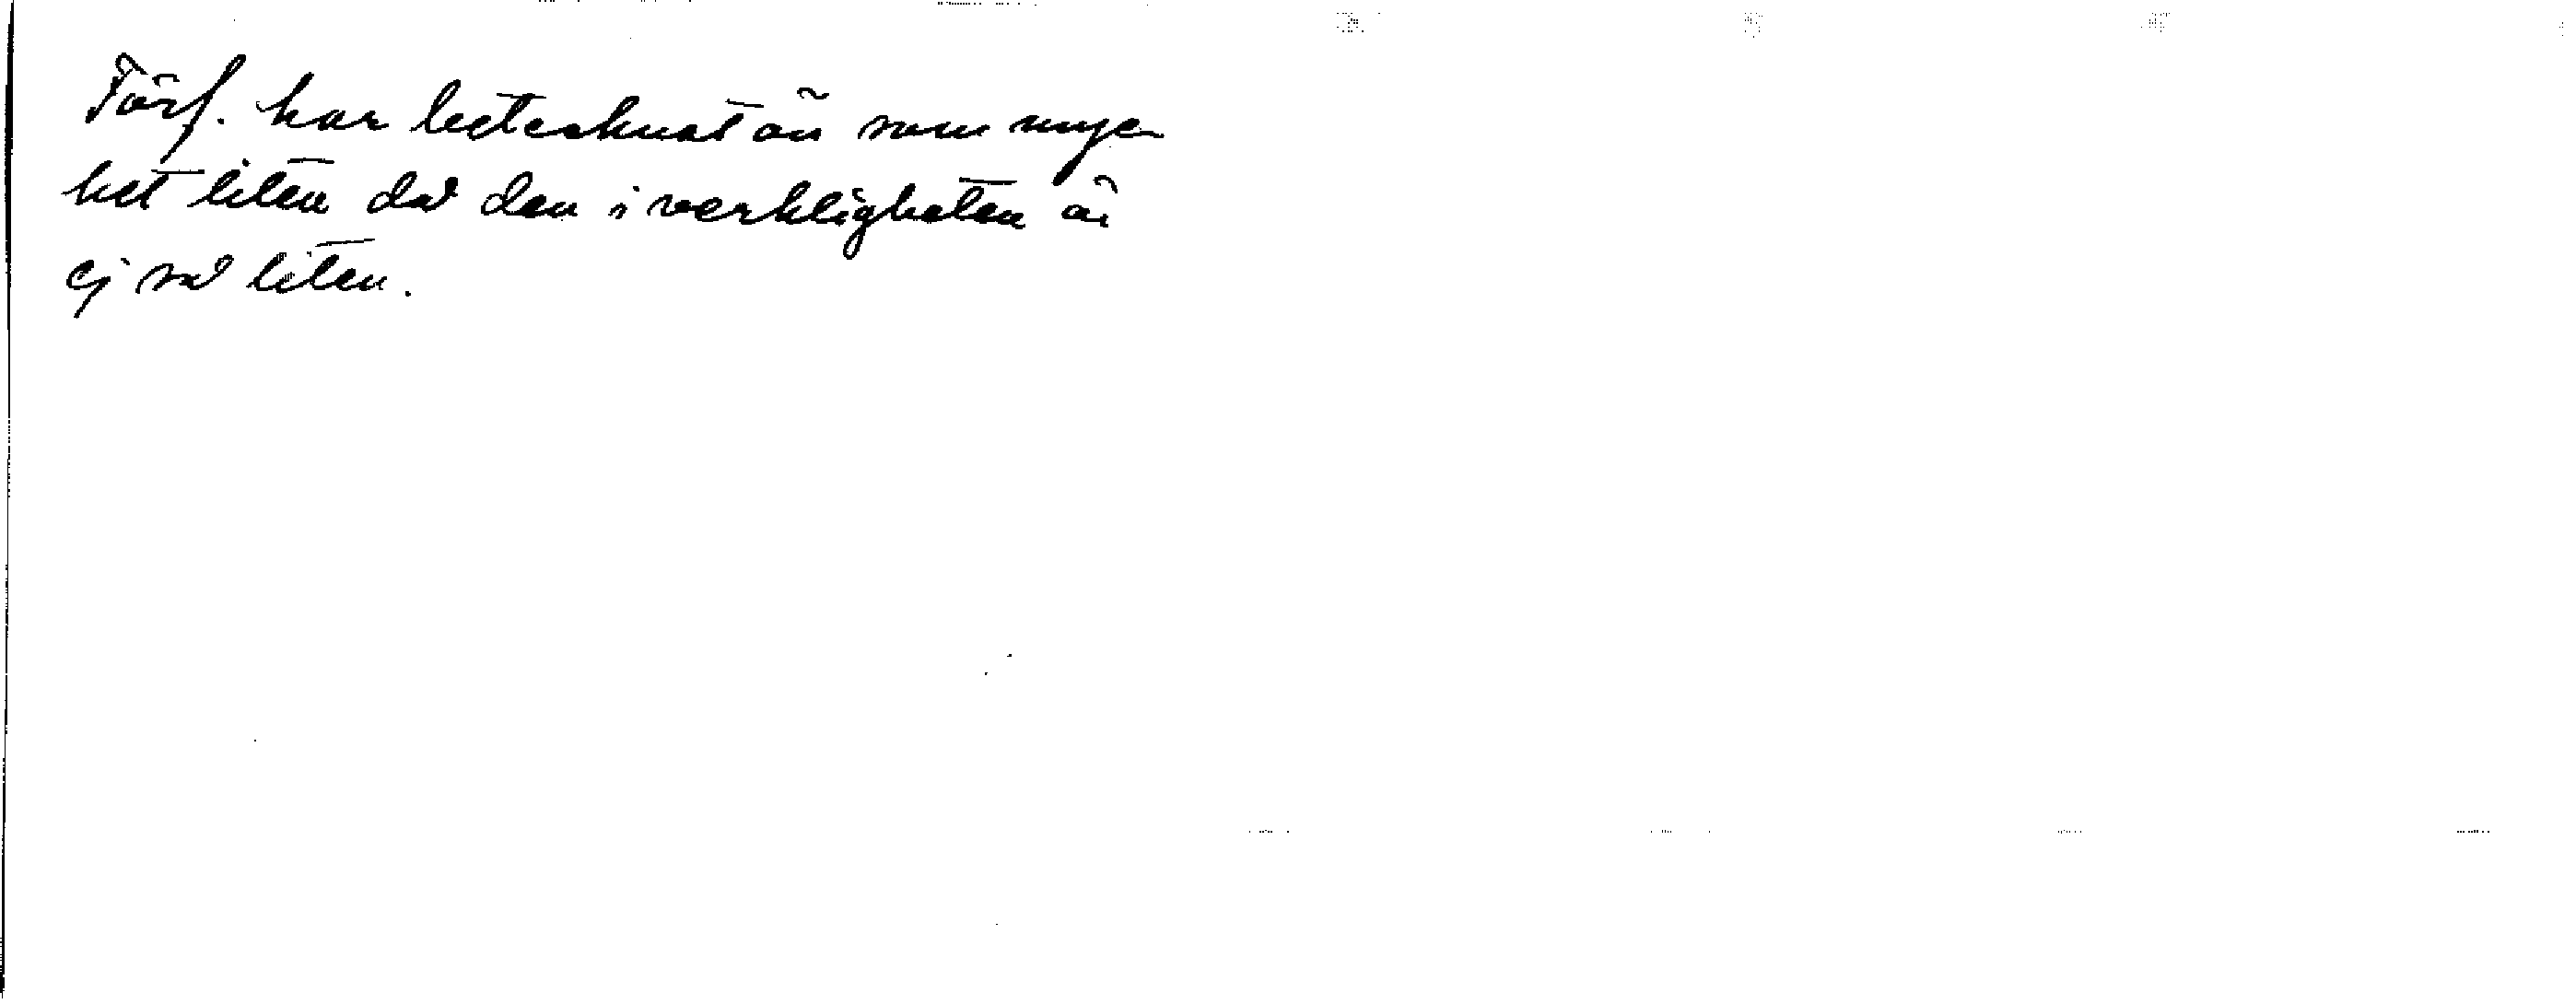 Förf. har betecknat ön som myc-
ket liten då den i verkligheten är
ej så liten.